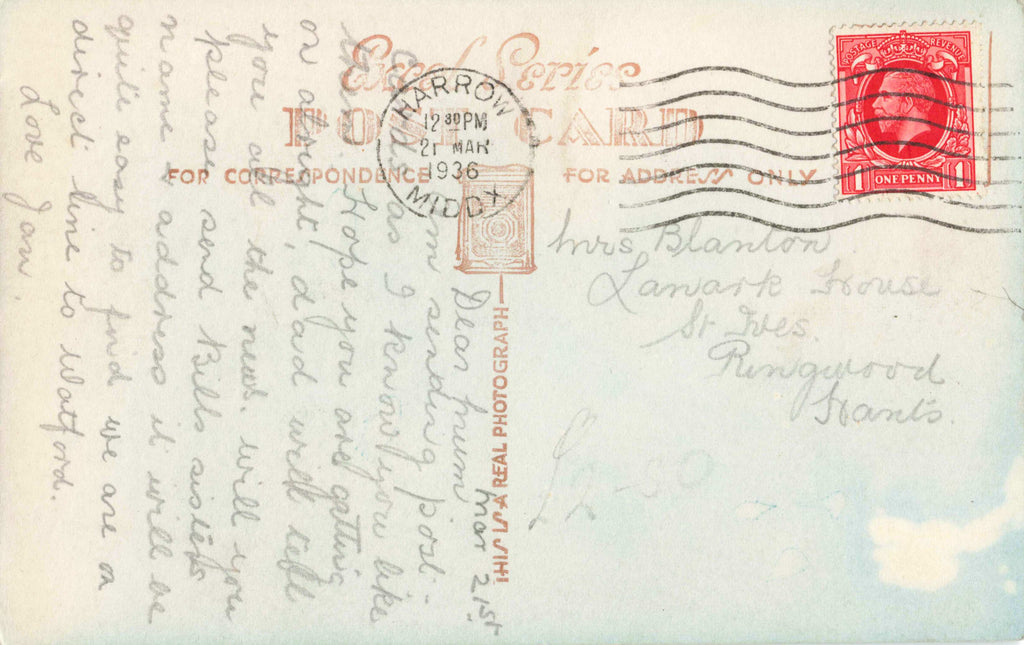 Excel Series
POST CARD
FOR CORRESPONDENCE
FOR ADDRESS ONLY
HARROW
12 30 PM
21 MAR
1936
MIDDX
POSTAGE REVENUE
1 ONE PENNY 1
Mrs Blanton
Lanark House
St Ives.
Ringwood
Hants.
£2-50
THIS IS A REAL PHOTOGRAPH
Mar 21st
Dear Mum
Am sending post
cards as I know you like
them. Hope you are getting
on alright, dad will tell
you all the news. will you
please send Bills sisters
name & address it will be
quite easy to find we are on a
direct line to Watford.
Love Jan.